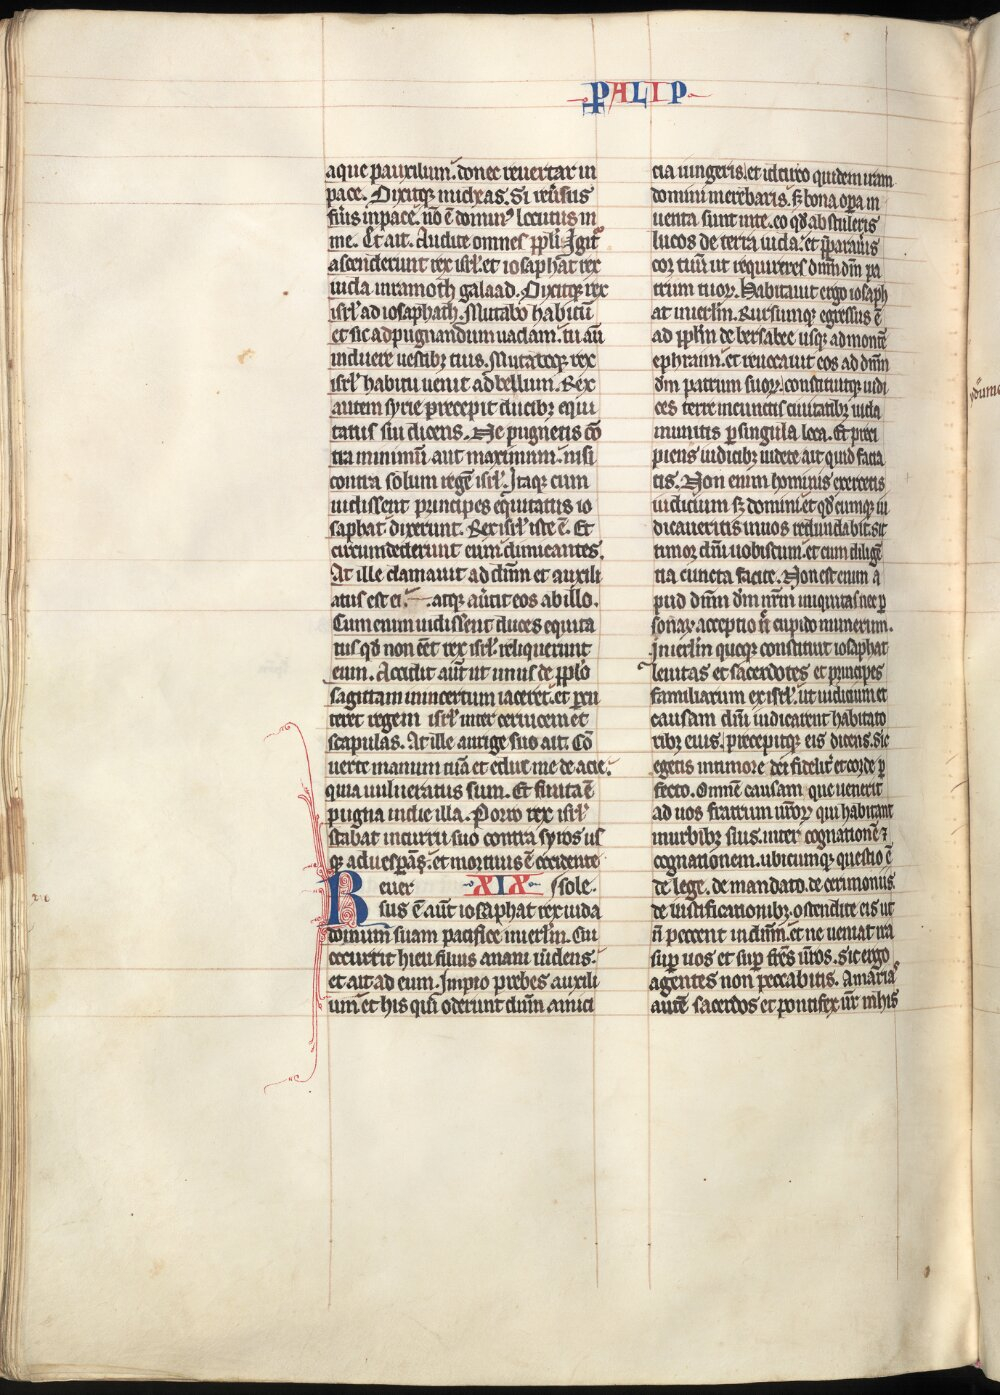 PALIP
aque pauxillum. donec reuertar in
pace. Dixitq; micheas. Si reũsus
fũis in pace. nõ ẽ domin⁹ locutus in
me. Et ait. Audite omnes ppli. Igit͛
ascenderunt rex isrł. et iosaphat rex
iuda in ramoth galaad. Dixitq; rex
isrł ad iosaphath. Mutabo habitũ
et sic ad pugnandum uadam. tu aũ
induere uestibȝ tuis. Mutatoq; rex
isrł habitu uenit ad bellum. Rex
autem syrie precepit ducibȝ equi
tatus sui dicens. Ne pugnetis cõ
tra minimũ aut maximum. nisi
contra solum regẽ isrł. Itaq; cum
uidissent principes equitatus io
saphat dixerunt. Rex isrł iste ẽ. Et
circumdederunt eum dimicantes.
At ille clamauit ad dñm et auxili
atus est ei. atq; aũtit eos ab illo.
Cum enim uidissent duces equita
tus qđ non eẽt rex isrł. reliquerunt
eum. Accidit aũt ut unus de pplo
sagittam in incertum iaceret. et pcu
teret regem isrł inter ceruicem et
scapulas. At ille aurige suo ait. Cõ
uerte manum tuã et educ me de acie.
quia uulneratus sum. Et finita ẽ
pugna in die illa. Porro rex isrł
stabat in curru suo contra syros us
q; ad uespãȝ. et mortuus ẽ occidente
Reuer XIX sole.
sus ẽ aũt iosaphat rex iuda
domum suam pacifice in ierłm. Cui
occurrit hieu filius anani uĩdens.
et ait ad eum. Impio prebes auxili
um. et his qũi oderunt dñm amici
cia iungeris. et idcirco quidem iram
domini merebaris. sȝ bona opa in
uenta sunt in te. eo qđ abstuleris
lucos de terra iuda. et pparaũis
cor tuũ ut requireres dñm dm pa
trum tuoꝝ. Habitauit ergo iosaph
at in ierłm. Rursumq; egressus ẽ
ad pplm de bersabee usq; ad montẽ
ephraim. et reuocauit eos ad dñm
dm patrum suoꝝ. constituitq; iudi
ces terre in cunctis ciuitatibȝ iuda
munitis p singula loca. Et preci
piens iudicibȝ uidete ait quid facia
tis. Non enim hominis exercetis
iudicium sȝ domini. et qđcumq; iu
dicaueritis in uos redundabit. sit
timor dñi uobiscum. et cum diligẽ
tia cuncta facite. Non est enim a
pud dñm dm nr̃m iniquitas nec p
sonaꝝ acceptio ñ cupido munerum.
In ierłm quoq; constituit iosaphat
leuitas et sacerdotes et principes
familiarum ex isrł. ut iudicium et
causam dñi iudicarent habitato
ribȝ eius. precepitq; eis dicens. Sic
egetis in timore dei fidelit͛ et corde p
fecto. Omnẽ causam que uenerit
ad uos fratrum ur̃oꝝ qui habitant
in urbibȝ suis. inter cognationẽ ⁊
cognationem. ubicumq; questio ẽ
de lege. de mandato. de cerimoniis.
de iustificationibȝ. ostendite eis ut
ñ peccent in dñm. et ne ueniat ira
sup uos et sup fr̃es ur̃os. Sic ergo
agentes non peccabitis. Amarias
autẽ sacerdos et pontifex ur̃ in his